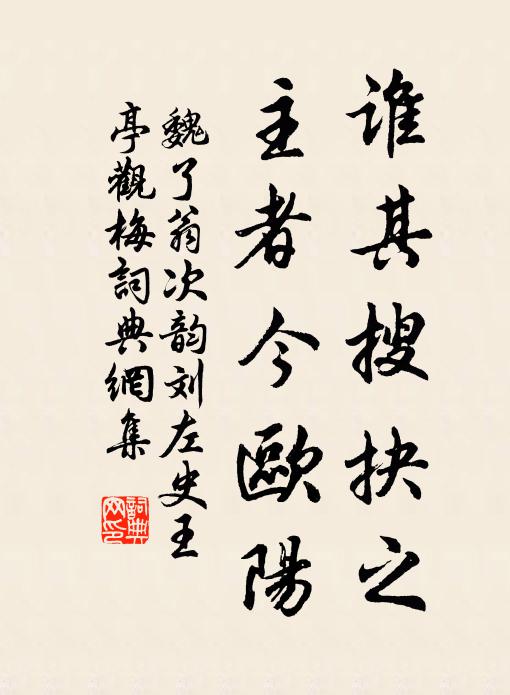 谁其搜抉之
主者今歐陽
魏了翁次韵刘左史王
亭觀梅詞典網集
詞典網印